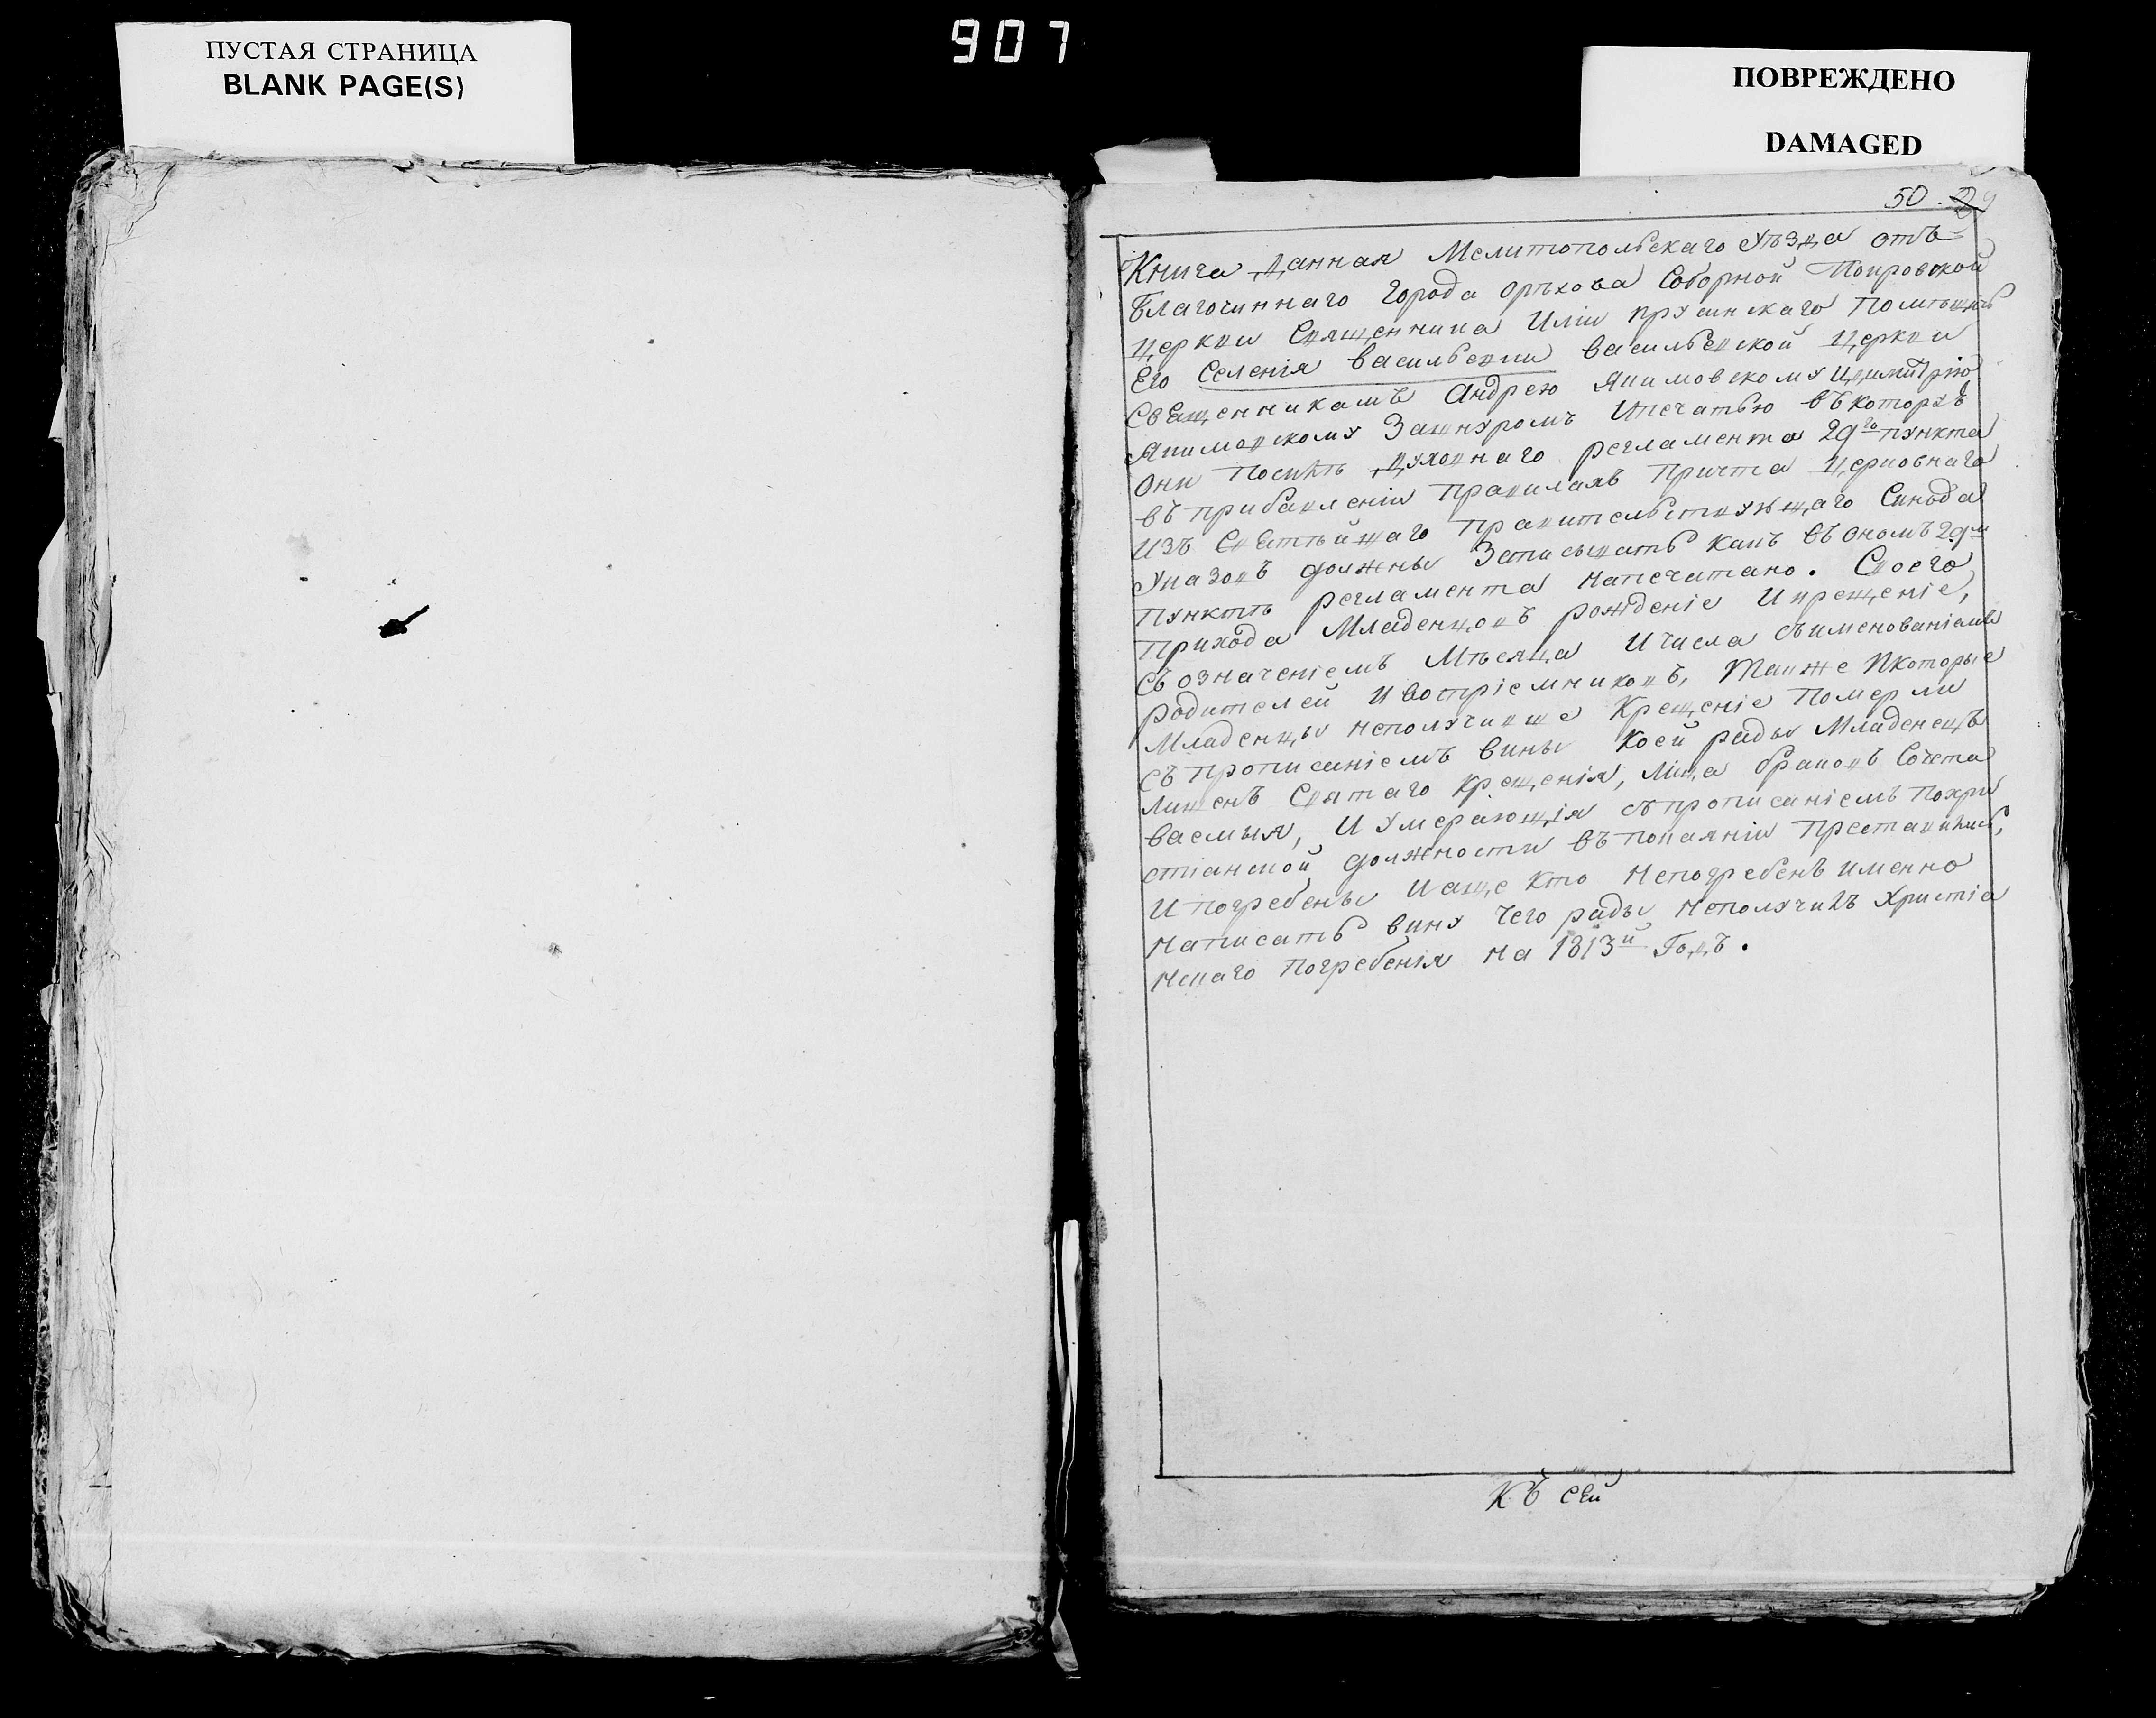 ПУСТАЯ СТРАНИЦА
BLANK PAGE(S)
907
ПОВРЕЖДЕНО
DAMAGED
50.
Книга Данная Мелитопольскаго Уѣзда отъ
Благочиннаго города орѣхова Соборной Покровской
церкви Священника Иліи
Его Селенія васильевки васильевской церкви
Священникамъ Андрею Якимовскому Идимитрію
Якимовскому Зашнуромъ Ипечатью въ
Они Посилѣ духовнаго регламента 29го пункта
въ прибавленіи правилахъ Причта церковнаго
Изъ Святѣйшаго Правительствующаго Синода
Указовъ должны Записывать какъ въ ономъ 29м
Пунктѣ регламента напечатано. Своего
Прихода Младенцовъ рожденіе Икрещеніе,
Съ означеніемъ Мѣсяца И числа съименованіемъ
родителей И воспріемниковъ, Также Икоторые
Младенцы неполучивше Крещеніе Померли
Съ прописаніемъ вины коей рады Младенецъ
Лишенъ Святаго Крещенія, Лица браковъ Сочета
ваемыя, И Умерающія съ прописаніемъ Похри
стіанской должности въ покаяніи Преставились,
И погребены И аще кто непогребенъ именно
Написать вину чего рады неполучилъ Христіа
нскаго Погребенія на 1813й Годъ.
Къ сей